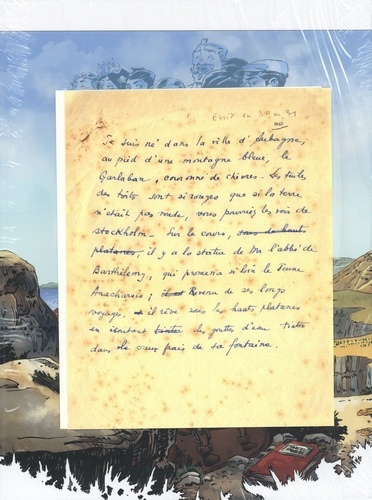 Je suis né dans la ville d'Aubagne,
au pied d'une montagne bleue, le
Garlaban, couronné de chèvres. Les tuiles
des toits sont si rouges que si la terre
n'était pas ronde, vous pourriez les voir de
stockholm - Sur le cours, sous de hauts
platanes, il y a la statue de Mr l'abbé de
Barthélemy, qui promena si loin le Jeune
Anacharsis; Revenu de ses longs
voyages, il rêve sous les hauts platanes
en écoutant les gouttes d'eau
dans le cœur frais de sa fontaine.